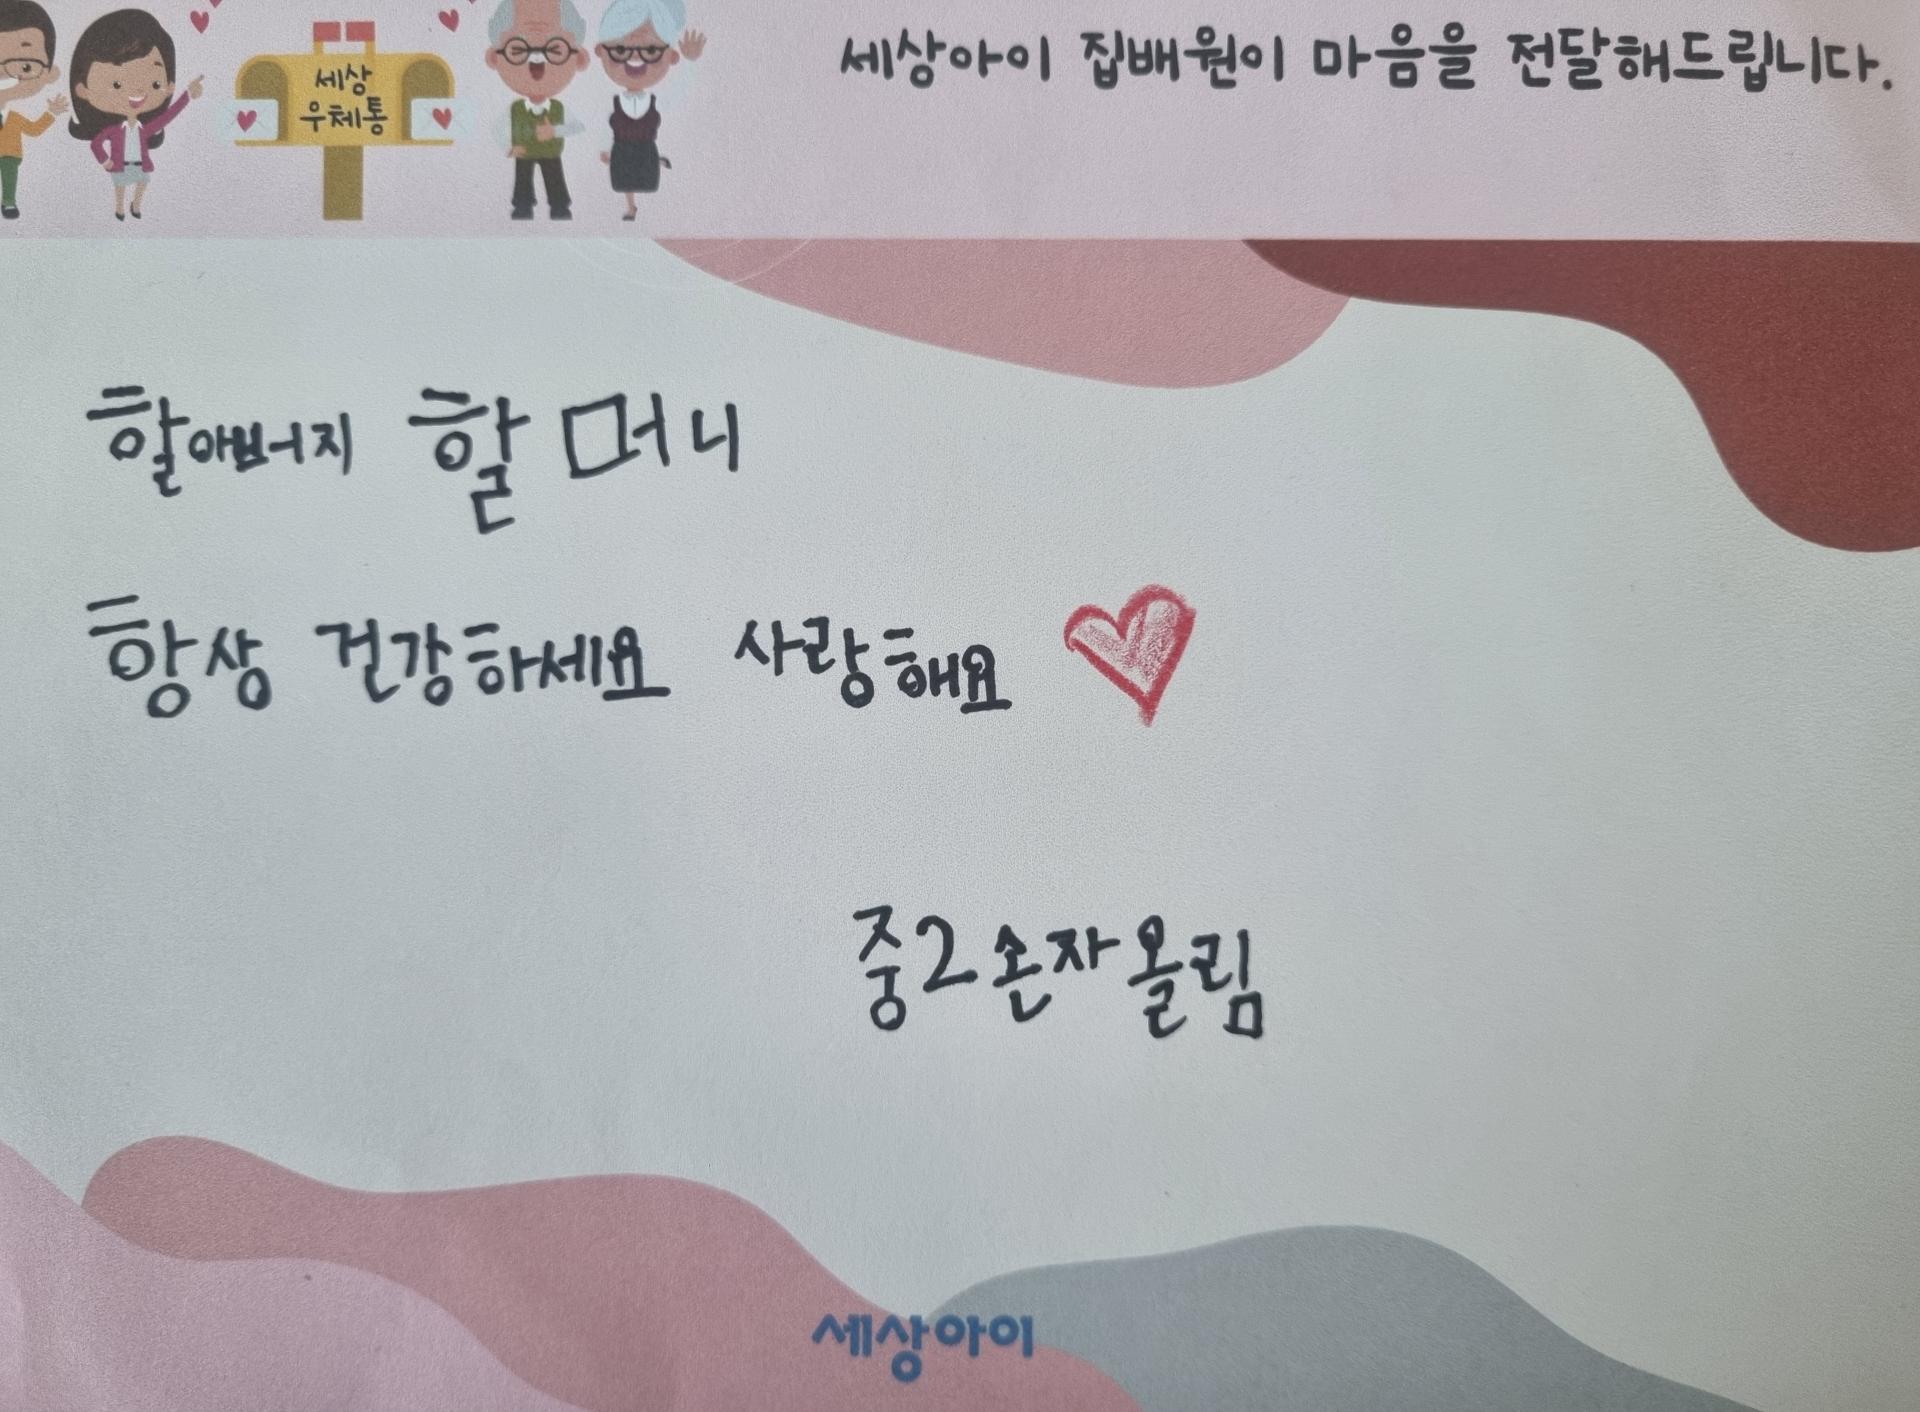 세상아이 집배원이 마음을 전달해드립니다.
세상
우체통
할아버지 할머니
항상 건강하세요 사랑해요
중2 손자 올림
세상아이